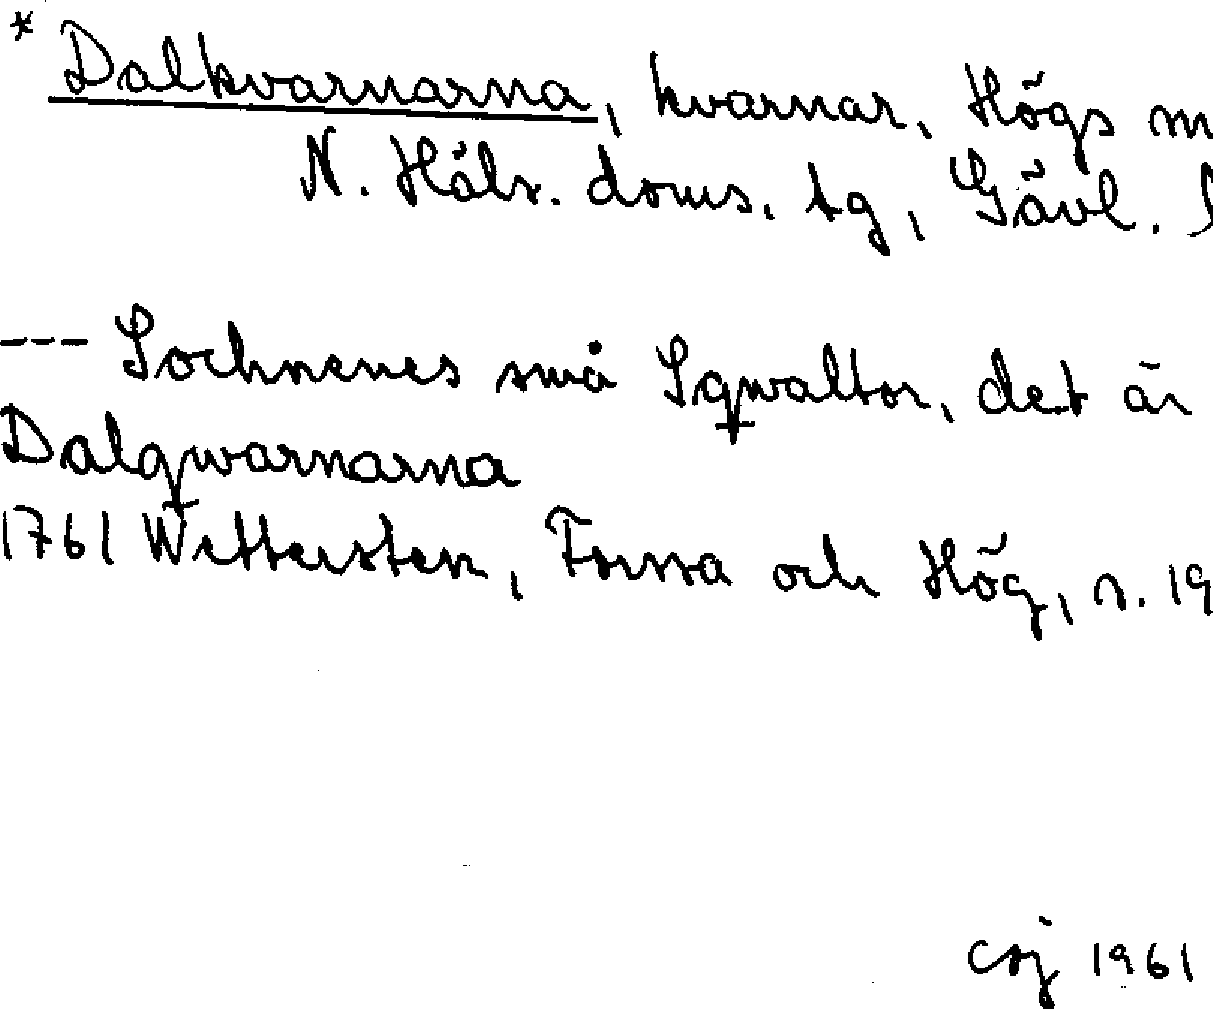 * Dalkvarnarna, kvarnar, Högs
N. Häls. doms. tg, Gävl.
--- Sochnenes små Sqwaltor, det är
Dalqwarnarna
1761 Wettersten, Forssa och Hög, s. 19
csj 1961